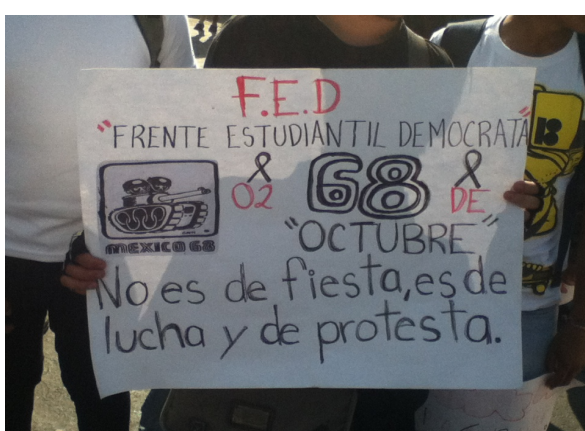 F.E.D
"FRENTE ESTUDIANTIL DEMOCRATA"
02 68 DE
MEXICO 68
"OCTUBRE"
No es de fiesta, es de
lucha y de protesta.